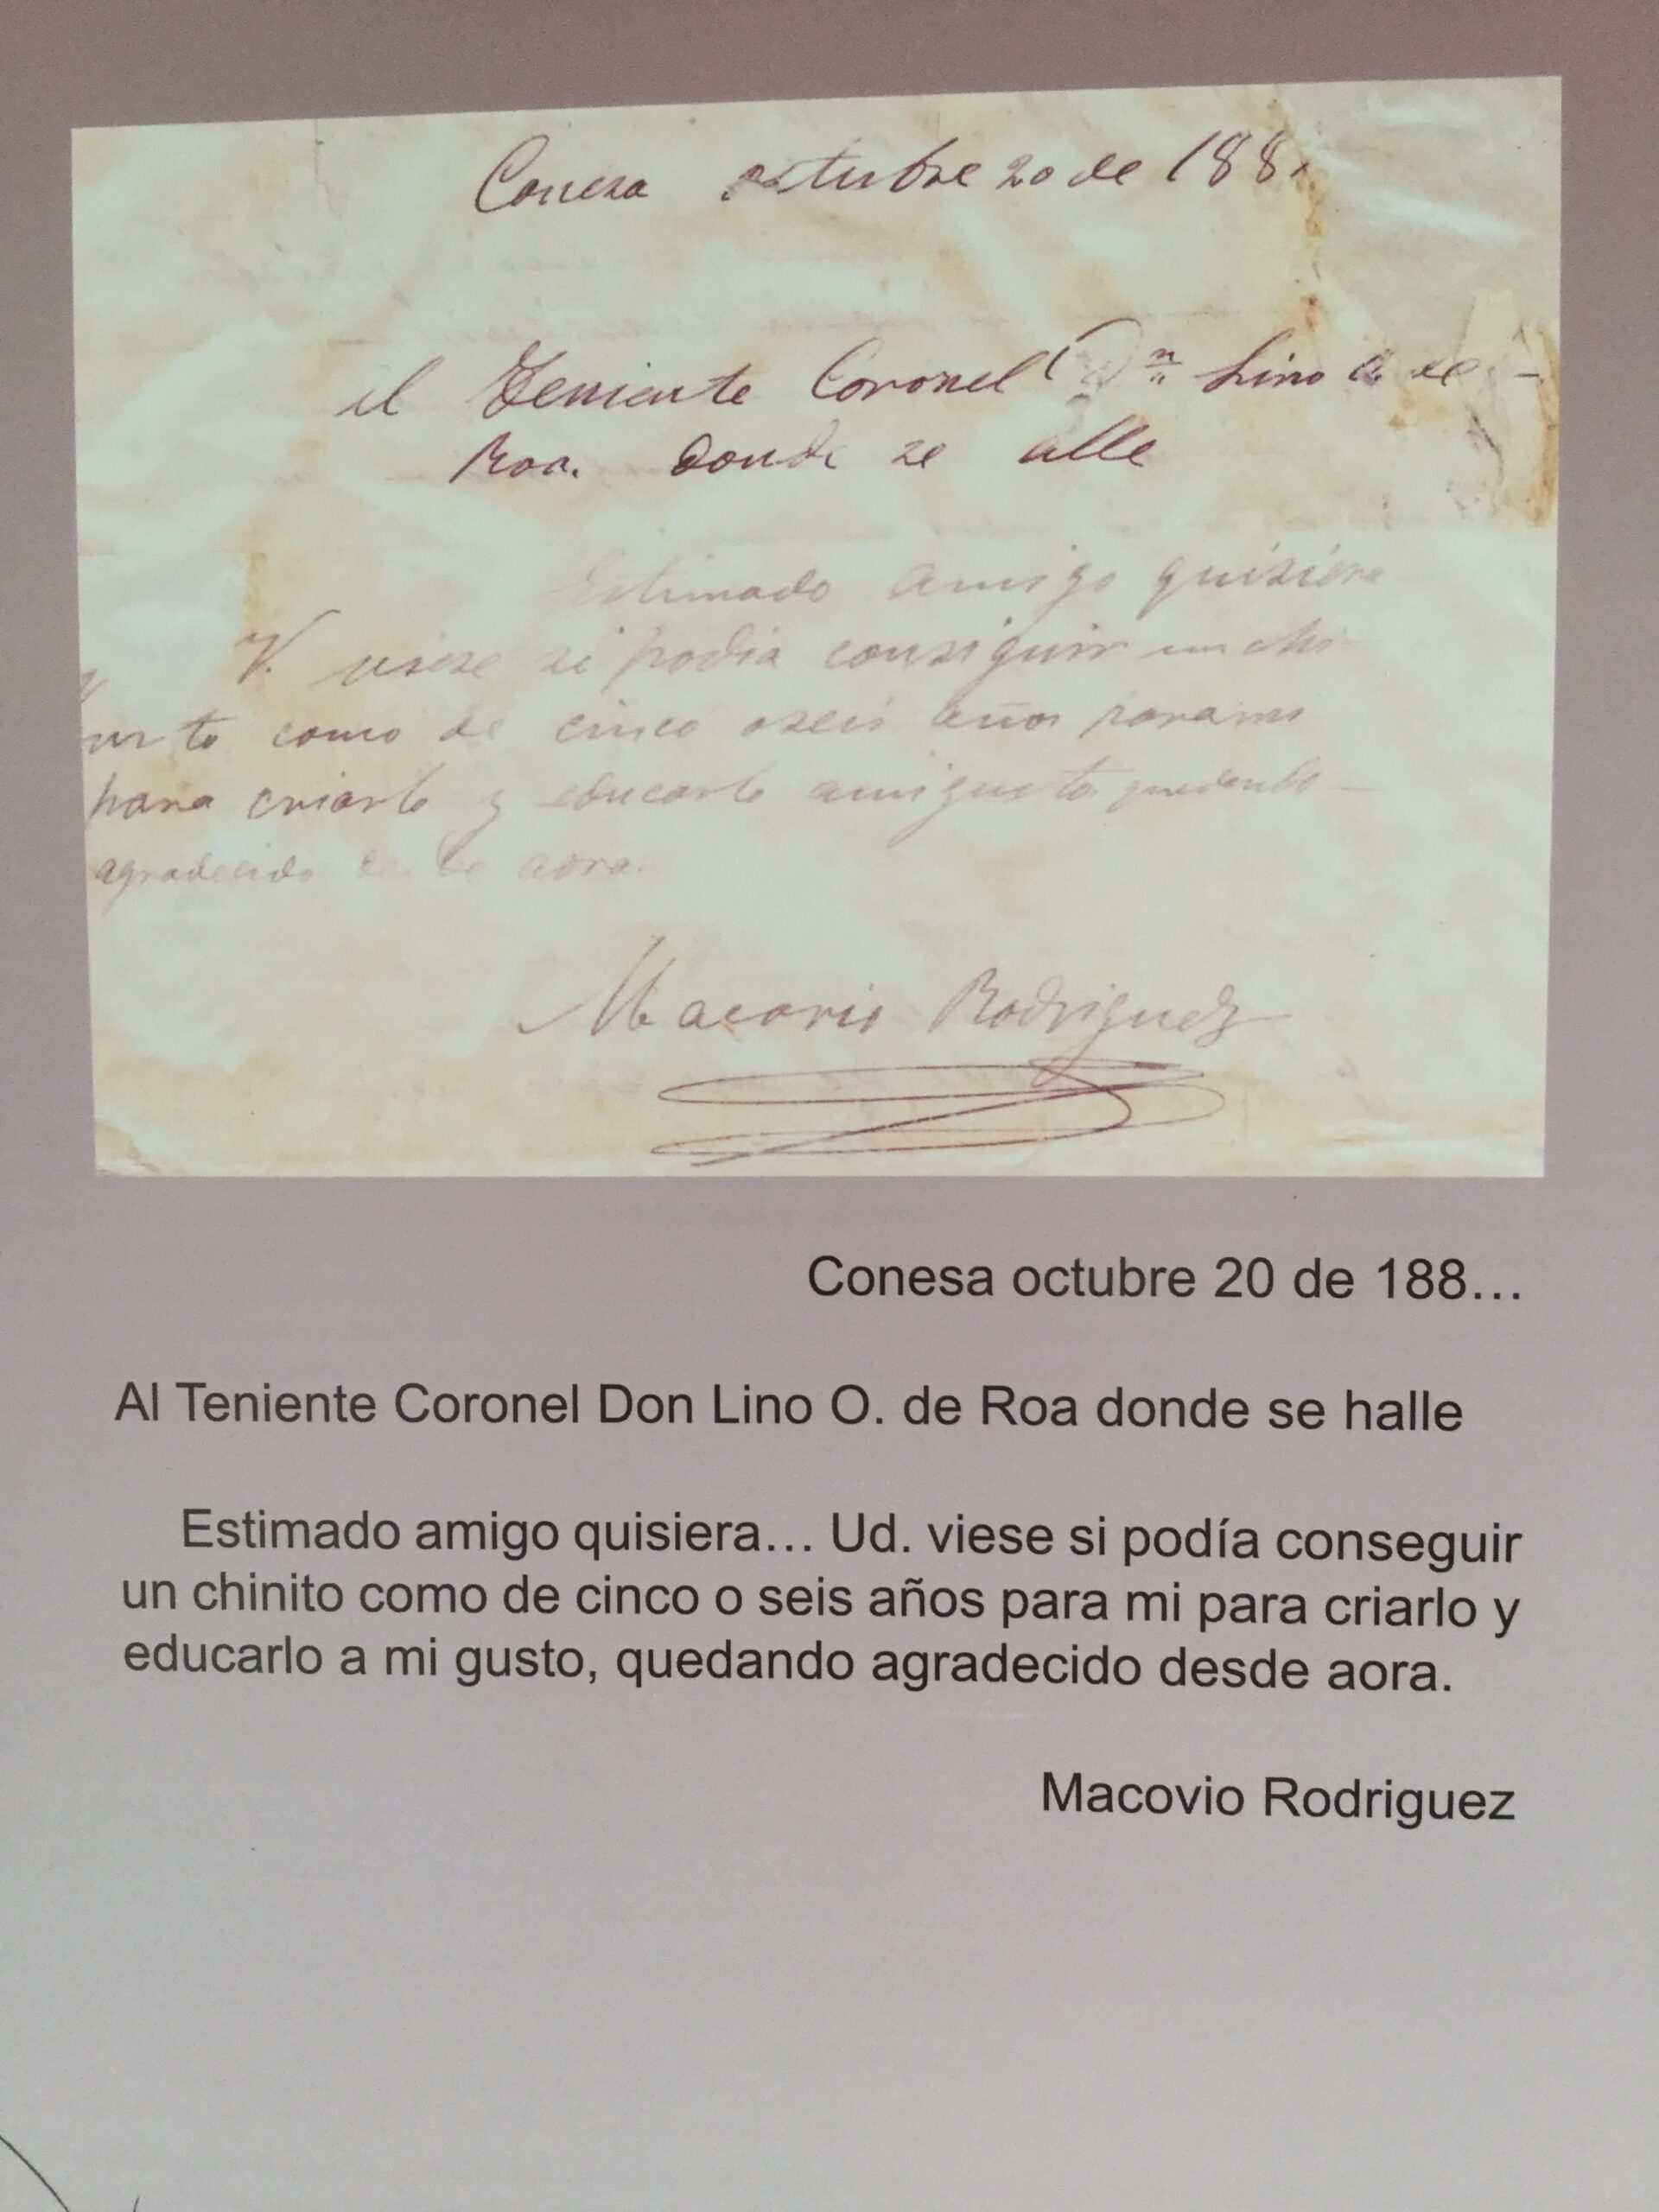 Conesa octubre 20 de 188
al Teniente Coronel Dn Lino O. de
Roa. donde se alle
Estimado amigo quisiera
V. viese si podia consiguir un chi-
nito como de cinco o seis años para mi
para criarlo y educarlo a mi gusto quedando
agradecido desde aora.
Macario Rodriguez
Conesa octubre 20 de 188...
Al Teniente Coronel Don Lino O. de Roa donde se halle
Estimado amigo quisiera... Ud. viese si podía conseguir
un chinito como de cinco o seis años para mi para criarlo y
educarlo a mi gusto, quedando agradecido desde aora.
Macovio Rodriguez